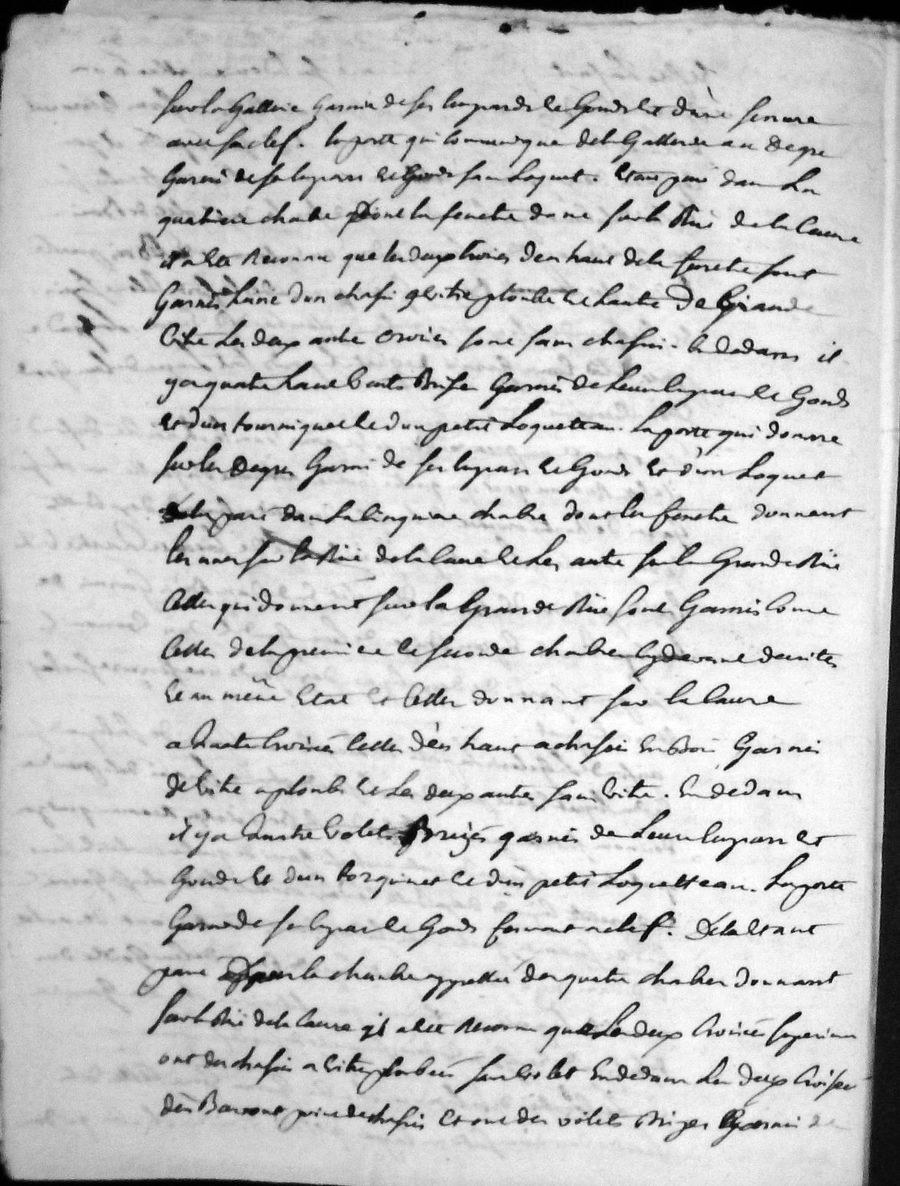 sur la Gallerie Garnie de ses lespards et Gonds et d'une serrure
avec sa clef. la porte qui communique de la Gallerie au degre
Garni de ses lepars et Gonds sans Loquet. Etant passé dans La
quatrieme chabre dont la fenetre donne sur la Ruë de la Caurre
il a ete Reconnu que les deux croisées den haut de la fenetre sont
Garnies Lune d'un chasis a vitre plombe et Lautre De Grande
vitre Les deux autre croisées sont sans chassis. En dedans il
y a quatre Contrevents Brisés Garnis de Leurs lepars et Gonds
et d'un tourniquet et d'un petit Loquetteau. La porte qui donne
sur les Degres Garni de ses lepars et Gonds et d'un Loquet
passé dans La cinquieme chabre dont les fenetre donnent
les unes sur la Ruë de la Caurre et Les autre sur la Grande Ruë
Celles qui donnent sur la Grande Ruë sont Garnies Comme
Celles de la premiere et seconde chabre cy devant decrites
et au même Etat et Celles donnant sur la Caurre
a quatre Croisées Celles d'en haut a chasis en Bois Garnis
de vitre a plombs et Les deux autres sans vitre. En dedans
il y a quatre volets Brizés garnis de Leurs lepars et
Gonds et d'un torquinet et d'un petit Loquetteau. La porte
Garnie de ses lepars et Gonds fermant a clef. De la Etant
passé dans la chambre appellée des quatre chabres donnant
sur la Ruë de la Caurre il a ete Reconnu que Les deux Croisées superieures
ont des chasis a vitre plombées sans volet En dedans Les deux Croisées
den Bas sont point de chassis et ont des volets Brizes Garnis de